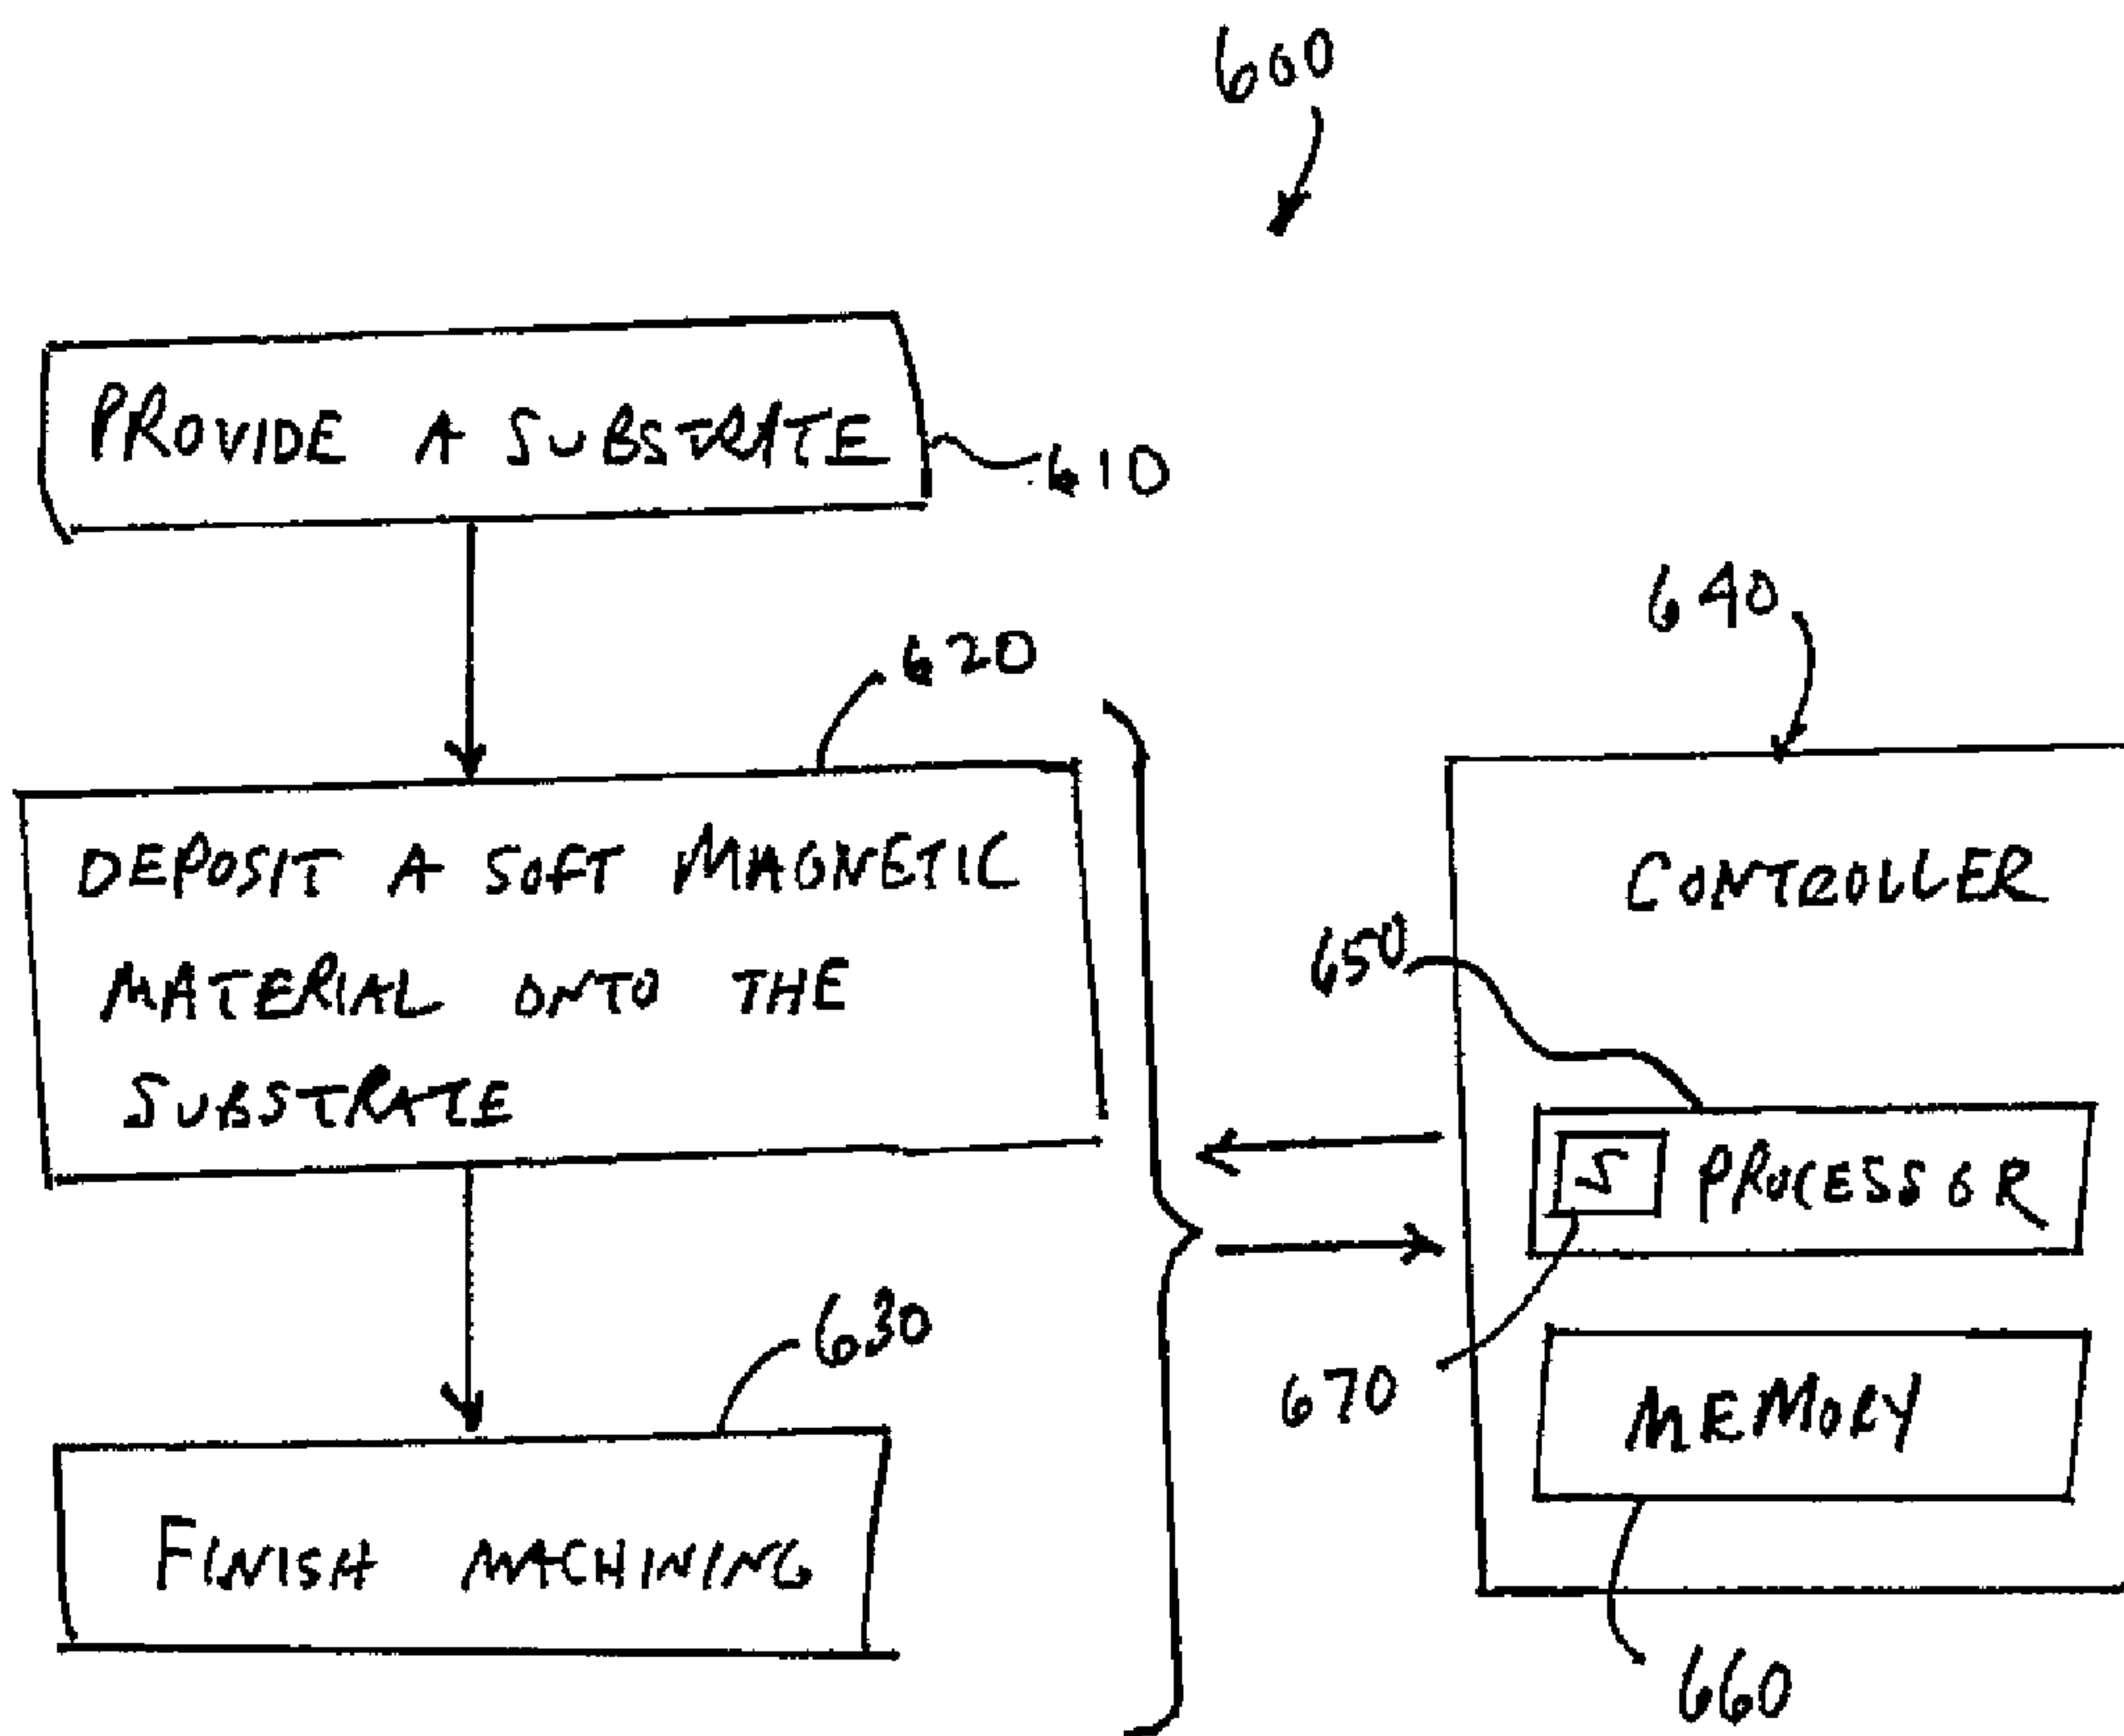 600
PROVIDE A SUBSTRATE
610
620
DEPOSIT A SOFT MAGNETIC
MATERIAL ONTO THE
SUBSTRATE
630
FINISH MACHINING
640
CONTROLLER
650
S PROCESSOR
670
MEMORY
660